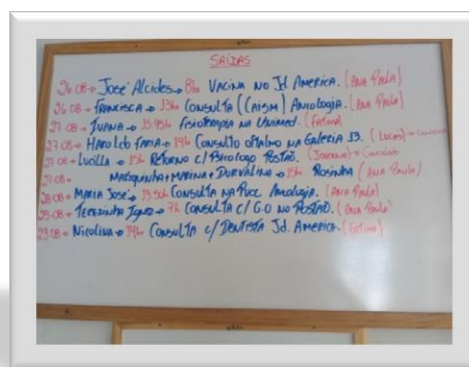 SAÍDAS
26.08 → José Alcides → 8h VACINA NO Jd AMERICA. (ANA PAULA)
26.08 → FRANCISCA → 13h CONSULTA (CAISM) (ANA PAULA)
27.08 → IVANA → FISIOTERAPIA NA UNIMED. (Fatima)
27.08 → HAROLDO FARIA → 14h CONSULTO OFTALMO NA GALERIA (LUCAS) →
27.08 → Lucilla → 15h RETORNO C/ PSICOLOGO POSTÃO.
27.08 → MARIQUINHA + MARINA + DURVALINA → 15h ROSINHA (ANA PAULA)
28.08 → MARIA JOSÉ → CONSULTA NA PUCC (ANA PAULA)
29.08 → TEREZINHA → 7h CONSULTA C/ G.O NO POSTÃO. (ANA PAULA)
29.08 → NICOLINA → 14h CONSULTA C/ DENTISTA Jd. AMERICA. (Fatima)